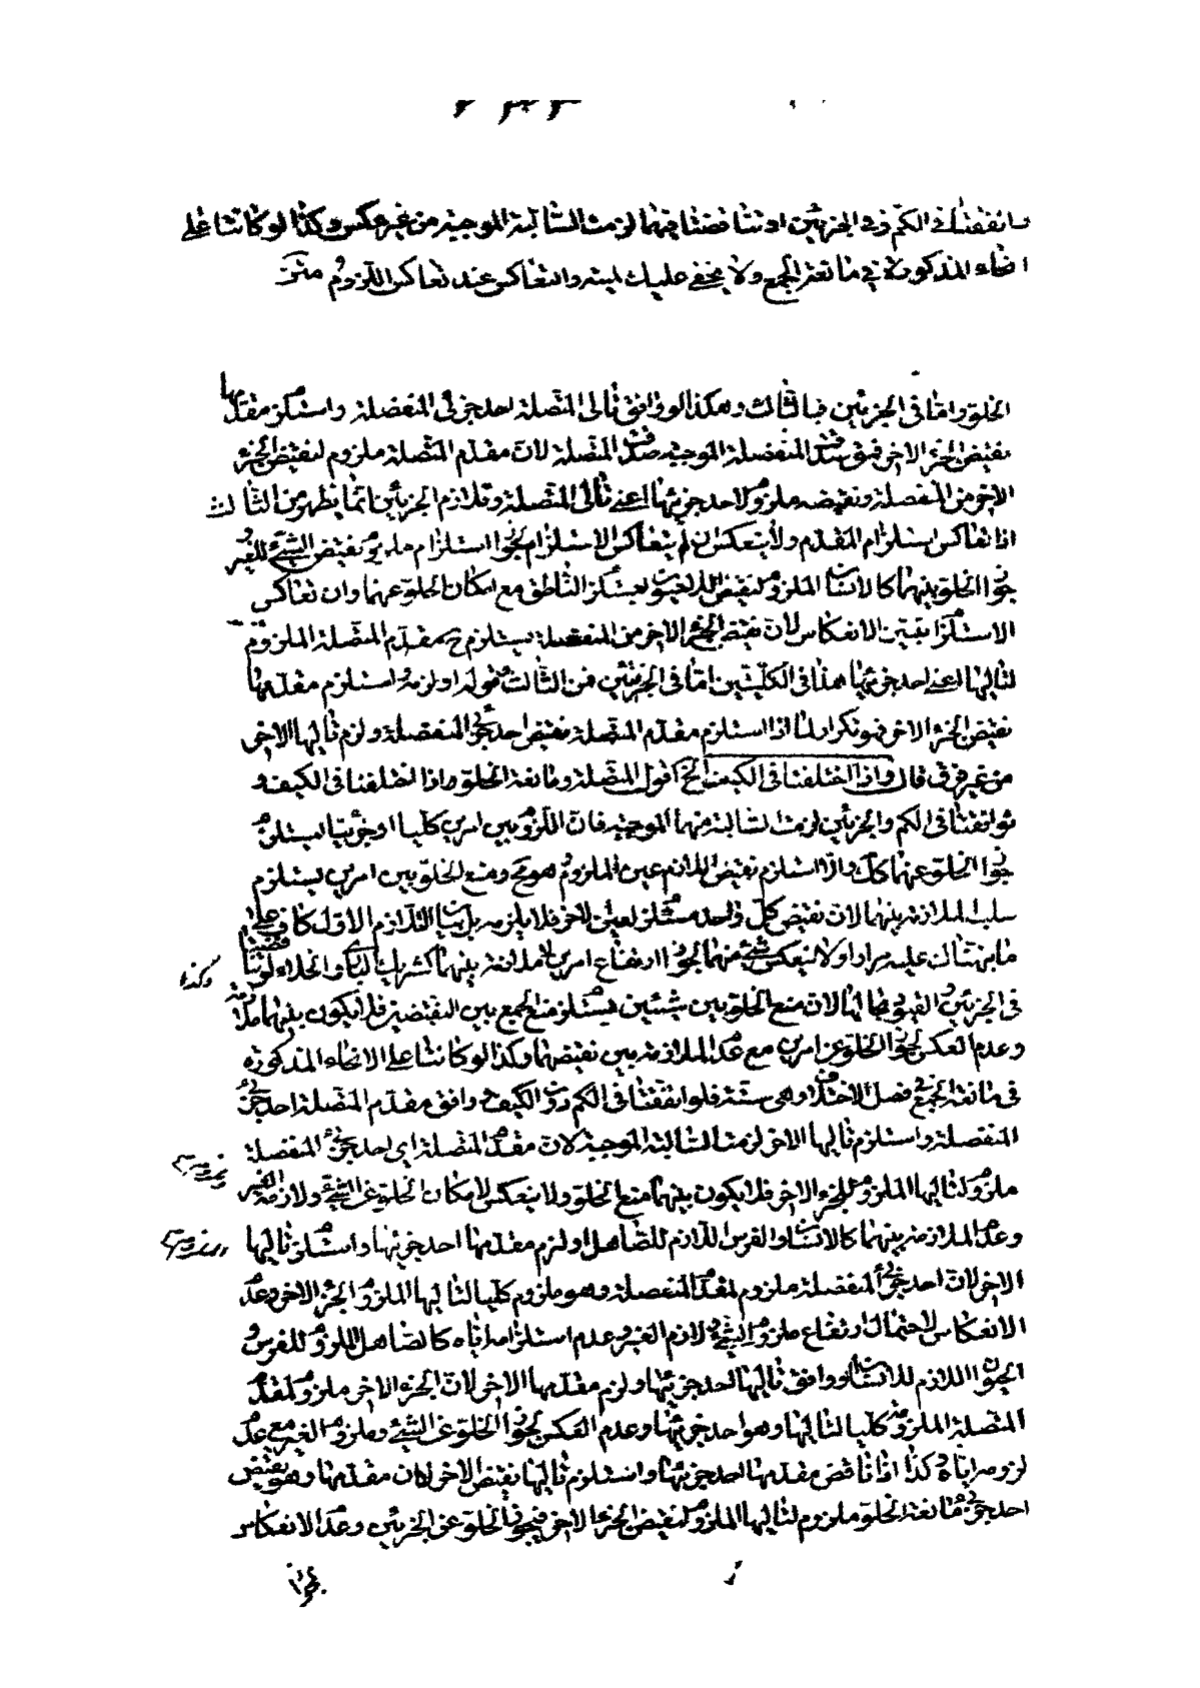 اتفقتا فى الكم وفى الجزئين او تناقضتا فيهما لزمت السالبة الموجبة من غير عكس وكذا لو كانتا على
انحاء المذكورة فى مانعة الجمع ولا يخفى عليك لميته والتعاكس عند تعاكس اللزوم متن
الخلو واما فى الجزئين فبالثالث وهكذا لو وافق تالى المتصلة احد جزئى المنفصلة واستلزم مقدمها
نقيض الجزء الاخر صدق المنفصلة الموجبة صدق المتصلة لان مقدم المتصلة ملزوم لنقيض الجزء
الاخر من المنفصلة ونقيضه ملزوم لاحد جزئيها اعنى تالى المتصلة وتلازم الجزئين انما يظهر من الثالث
اذا تعاكس استلزام المقدم ولا ينعكس ان لم يتعاكس الاستلزام لجواز استلزام ملزوم نقيض الشئ للغير
جواز الخلو بينهما كالانسان الملزوم لنقيض يستلزم الناطق مع امكان الخلو عنهما وان تعاكس
الاستلزام تبين الانعكاس لان نقيض الجزء الاخر من المنفصلة يستلزم ح مقدم المتصلة الملزوم
لتاليها اعنى احد جزئيها هذا فى الكليتين اما فى الجزئيتين فمن الثالث قوله او لزم استلزم مقدمها
نقيض الجزء الاخر فهو تكرار لما اذا استلزم مقدم المتصلة نقيض احد جزئى المنفصلة ولزم تاليها الاخر
من غير فرق قال واذا اختلفتا فى الكيف الخ اقول المتصلة ومانعة الخلو اذا اختلفتا فى الكيف و
توافقتا فى الكم والجزئين لزمت السالبة منهما الموجبة فان اللزوم بين امرين كليا او جزئيا يستلزم
جواز الخلو عنهما كك والا استلزم نقيض اللازم عين الملزوم هو مح ومنع الخلو بين امرين يستلزم
سلب الملازمة بينهما لان نقيض كل واحد مستلزم لعين الاخر فلا يلزمه بل التلازم الاول كاف على
ما نبهناك عليه مرارا ولا ينعكس شئ منهما لجواز ارتفاع امرين لا ملازمة بينهما كشريك البارى والخلاء
وكذا
فى الجزئين لان منع الخلو بين شيئين يستلزم منع الجمع بين النقيضين فلا يكون بينهما ملازمة
وعدم العكس لجواز الخلو عن امرين مع عدم الملازمة بين نقيضهما وكذا لو كانتا على الانحاء المذكورة
فى مانعة الجمع فى فصل الاختلاف وهى ستة فلو اتفقتا فى الكم دون الكيف وافق مقدم المتصلة احد جزئى
المنفصلة واستلزم تاليها الاخر لزمت السالبة الموجبة لان مقدم المتصلة اى احد جزئى المنفصلة
ملزوم لتاليها الملزوم للجزء الاخر فلا يكون بينهما منع الخلو ولا ينعكس لامكان الخلو عن الشئ ولازمه الغير
وعدم الملازمة بينهما كالانسان والفرس اللازم للصاهل او لزم مقدمها احد جزئيها واستلزم تاليها
الاخر لان احد جزئى المنفصلة ملزوم لمقدم المنفصلة وهو ملزوم كليا لتاليها الملزوم الجزء الاخر وعدم
الانعكاس لاحتمال ارتفاع ملزوم الشئ ولازم الغير وعدم استلزامه اياه كالصاهل الملزوم للفرس و
الحيوان اللازم للانسان او وافق تاليها احد جزئيها ولزم مقدمها الاخر لان الجزء الاخر ملزوم لمقدم
المتصلة الملزوم كليا لتاليها وهو احد جزئيها وعدم العكس لجواز الخلو عن الشئ وملزوم الغير مع عدم
لزومه اياه وكذا اذا ناقض مقدمها احد جزئيها واستلزم تاليها نقيض الاخر لان مقدمها وهو نقيض
احد جزئى مانعة الخلو ملزوم لتاليها الملزوم لنقيض الجزء الاخر فيجوز الخلو عن الجزئين وعدم الانعكاس